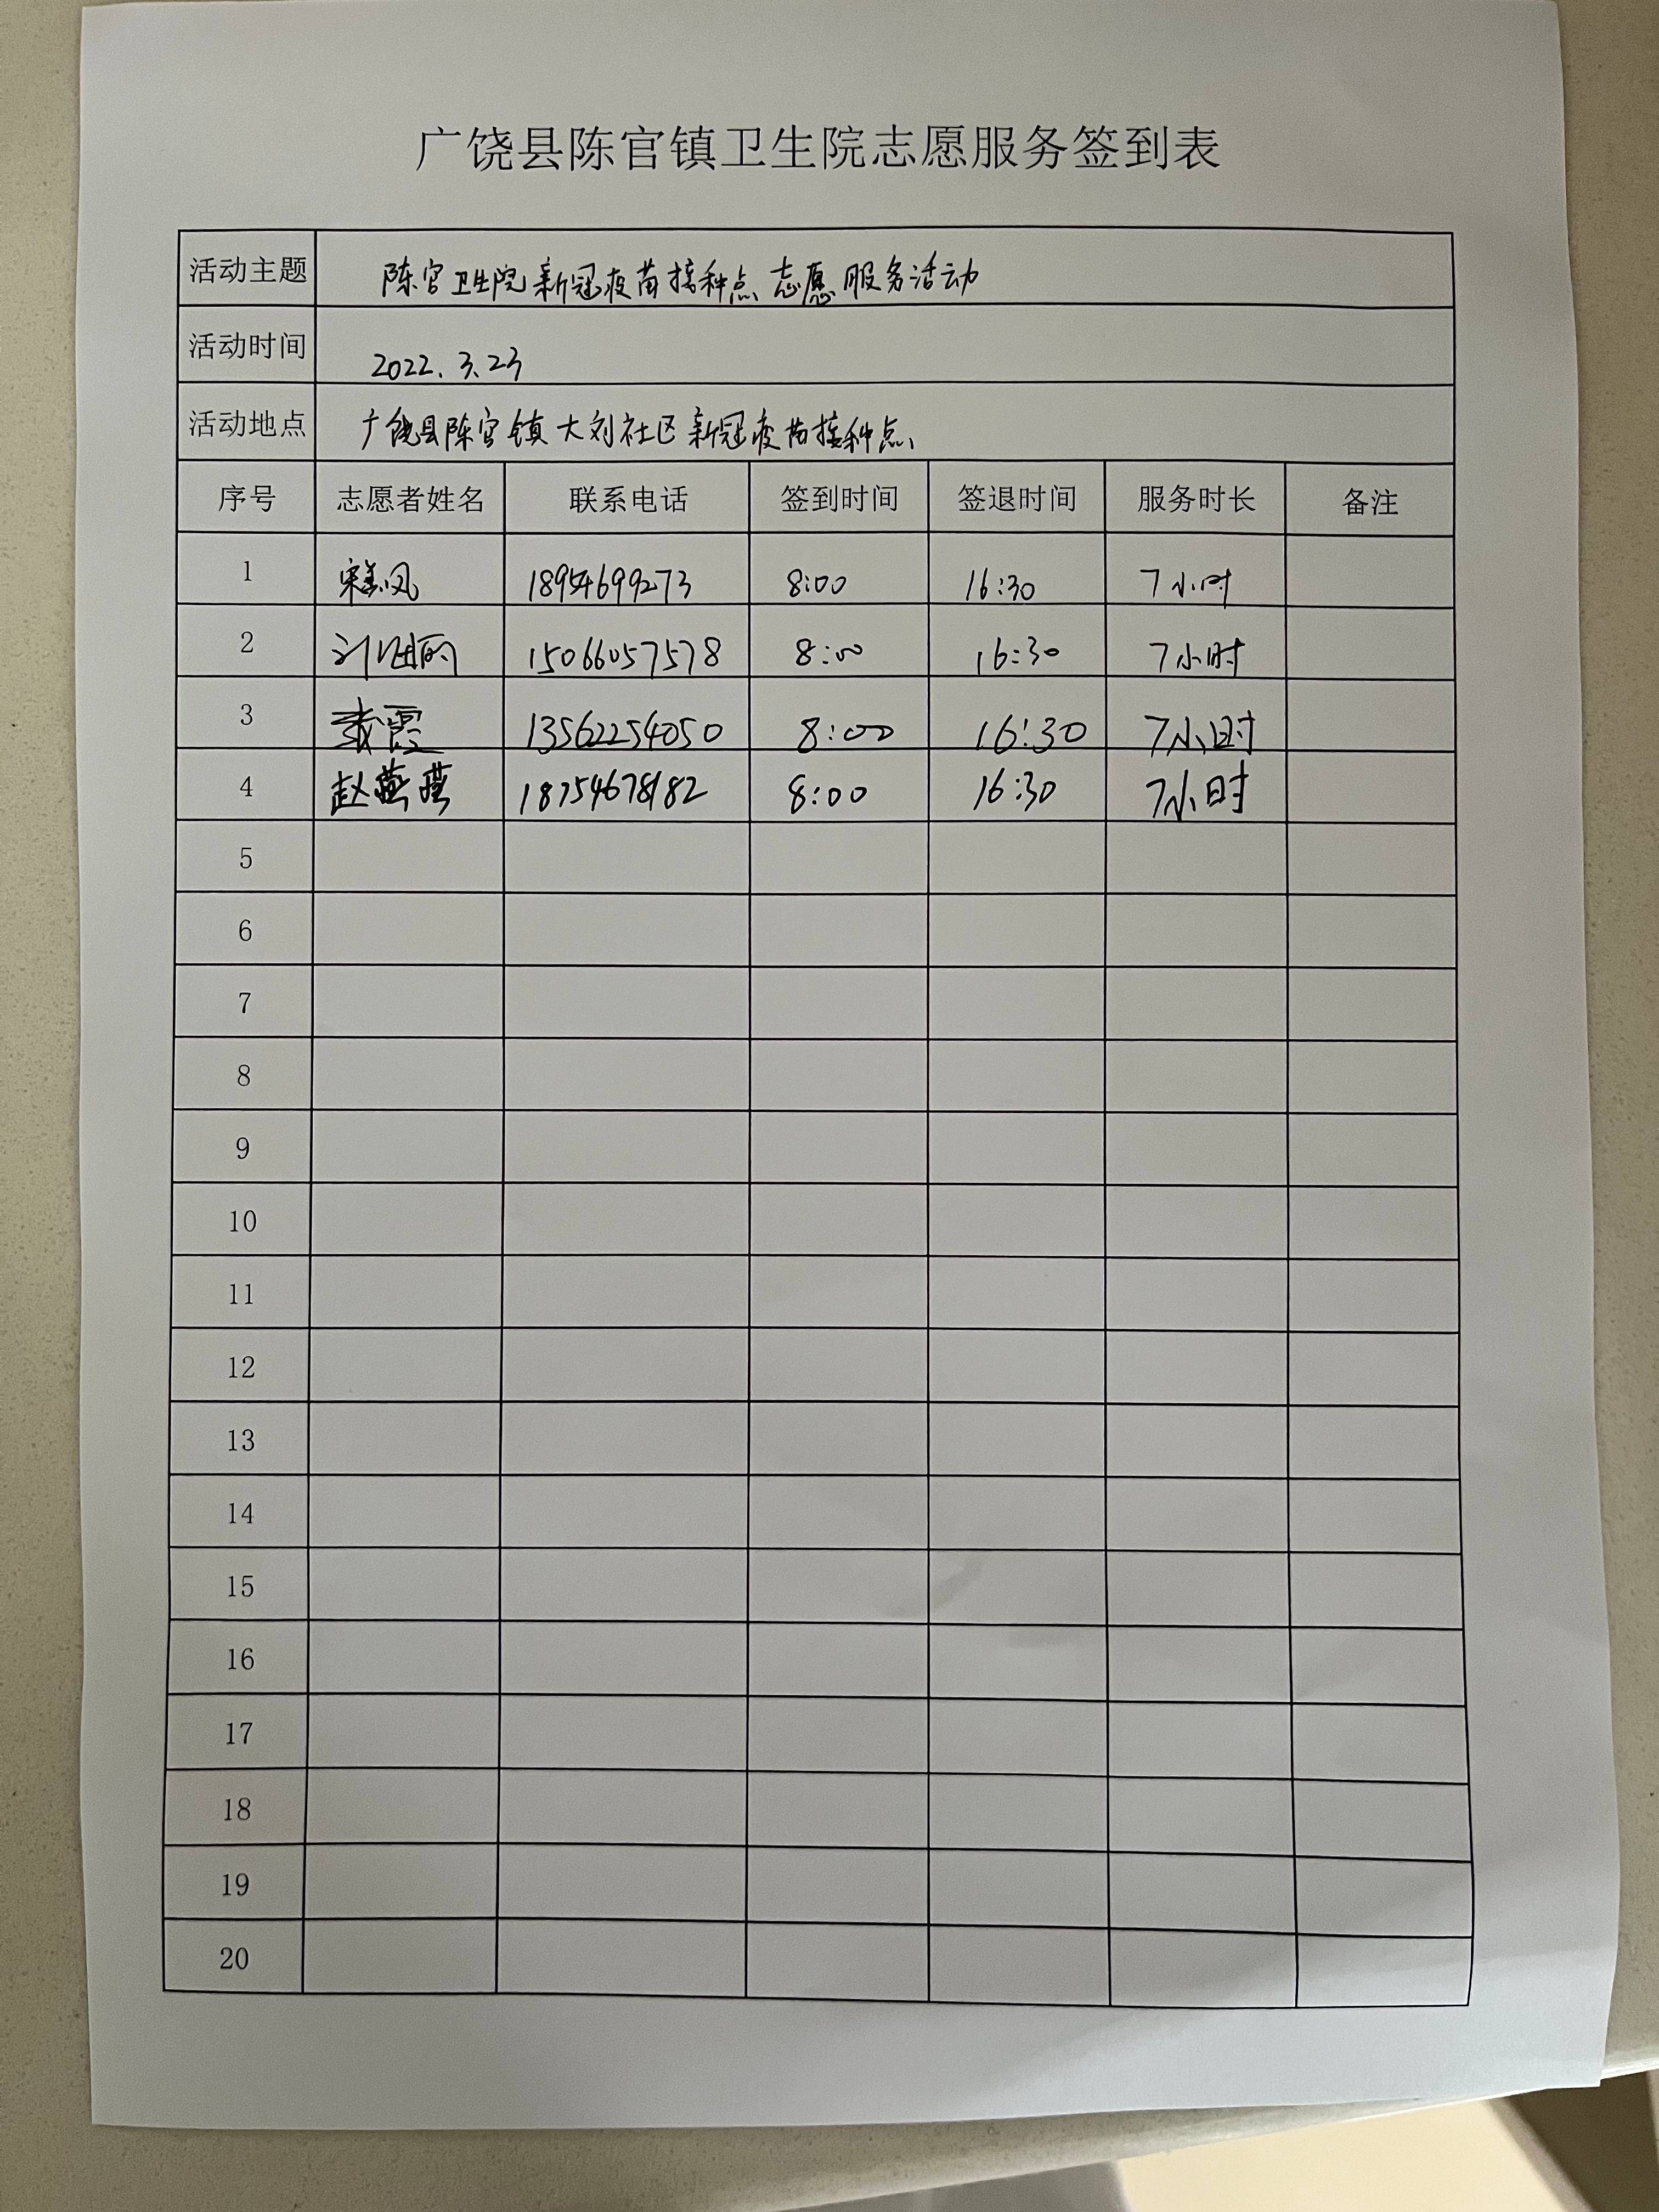 广饶县陈官镇卫生院志愿服务签到表
活动主题 陈官卫生院新冠疫苗接种点志愿服务活动
活动时间 2022.3.23
活动地点 广饶县陈官镇大刘社区新冠疫苗接种点
序号 志愿者姓名 联系电话 签到时间 签退时间 服务时长 备注
1 18954699273 8:00 16:30 7小时
2 15066057578 8:00 16:30 7小时
3 13562254050 8:00 16:30 7小时
4 赵燕燕 18754678182 8:00 16:30 7小时
5
6
7
8
9
10
11
12
13
14
15
16
17
18
19
20